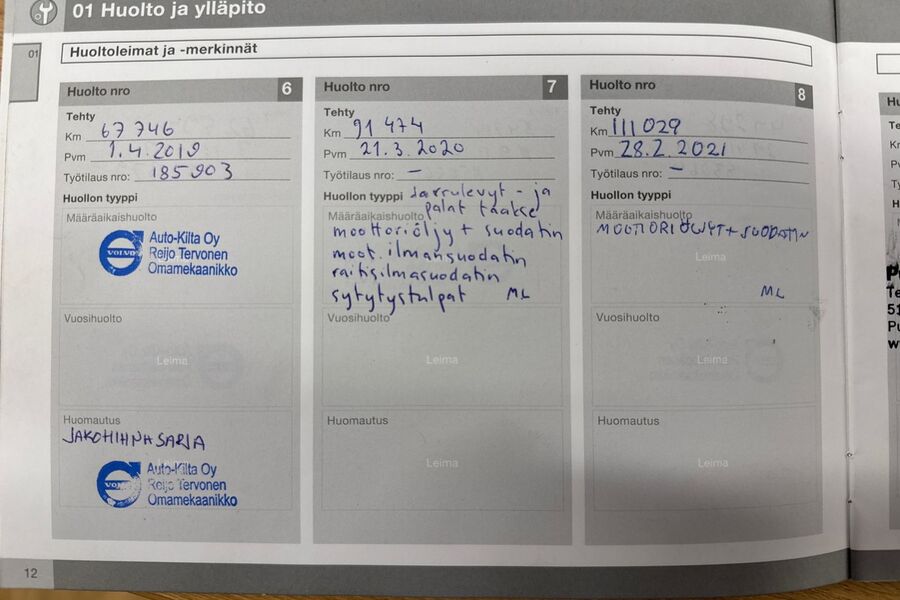 01 Huolto ja ylläpito
01
Huoltoleimat ja -merkinnät
Huolto nro 6
Tehty
Km 67 746
Pvm 1.4.2019
Työtilaus nro: 185903
Huollon tyyppi
Määräaikaishuolto
VOLVO
Auto-Kilta Oy
Reijo Tervonen
Omamekaanikko
Vuosihuolto
Leima
Huomautus
JAKOHIHNASARJA
VOLVO
Auto-Kilta Oy
Reijo Tervonen
Omamekaanikko
Huolto nro 7
Tehty
Km 91 474
Pvm 21.3.2020
Työtilaus nro: -
Huollon tyyppi
Jarrulevyt - ja
palat taakse
Määräaikaishuolto
moottoriöljy + suodatin
moot. ilmansuodatin
raitisilmasuodatin
sytytystulpat ML
Vuosihuolto
Leima
Huomautus
Leima
Huolto nro 8
Tehty
Km 111 029
Pvm 28.2.2021
Työtilaus nro: -
Huollon tyyppi
Määräaikaishuolto
MOOTTORIÖLJYT + SUODATIN
Leima
ML
Vuosihuolto
Leima
Huomautus
Leima
12